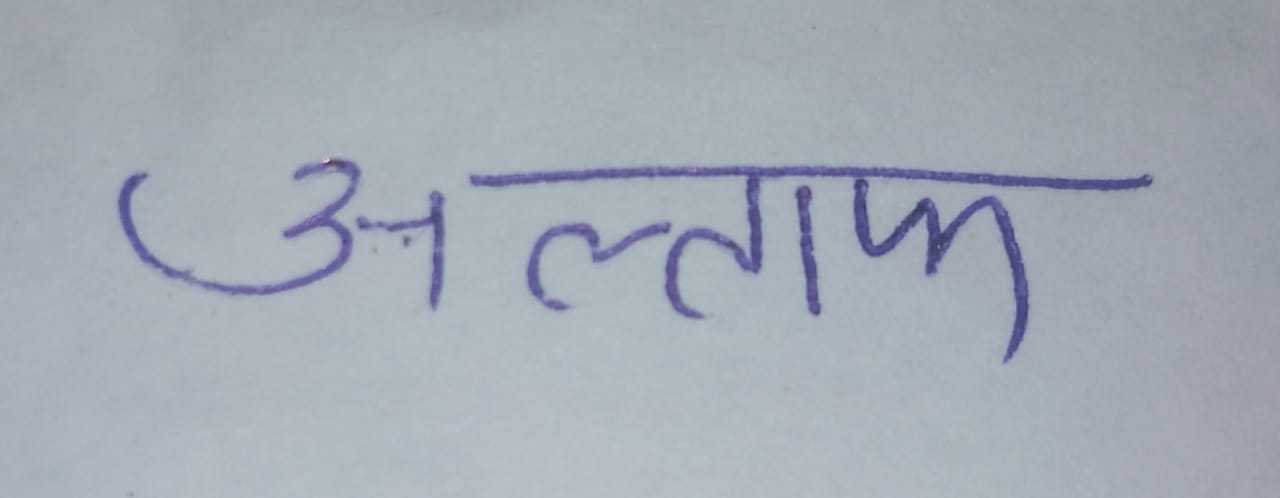 अल्ताफ